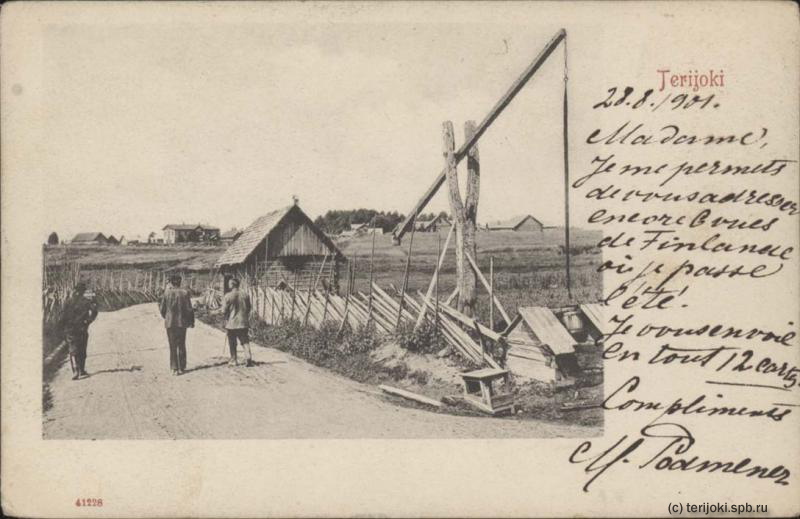 Terijoki
28.8.1901.
Madame,
Je me permets
de vous adresser
encore 6 vues
de Finlande
où je passe
l'été.
Je vous envoie
en tout 12 cartes
Compliments
M. Podmener
41228
(c) terijoki.spb.ru